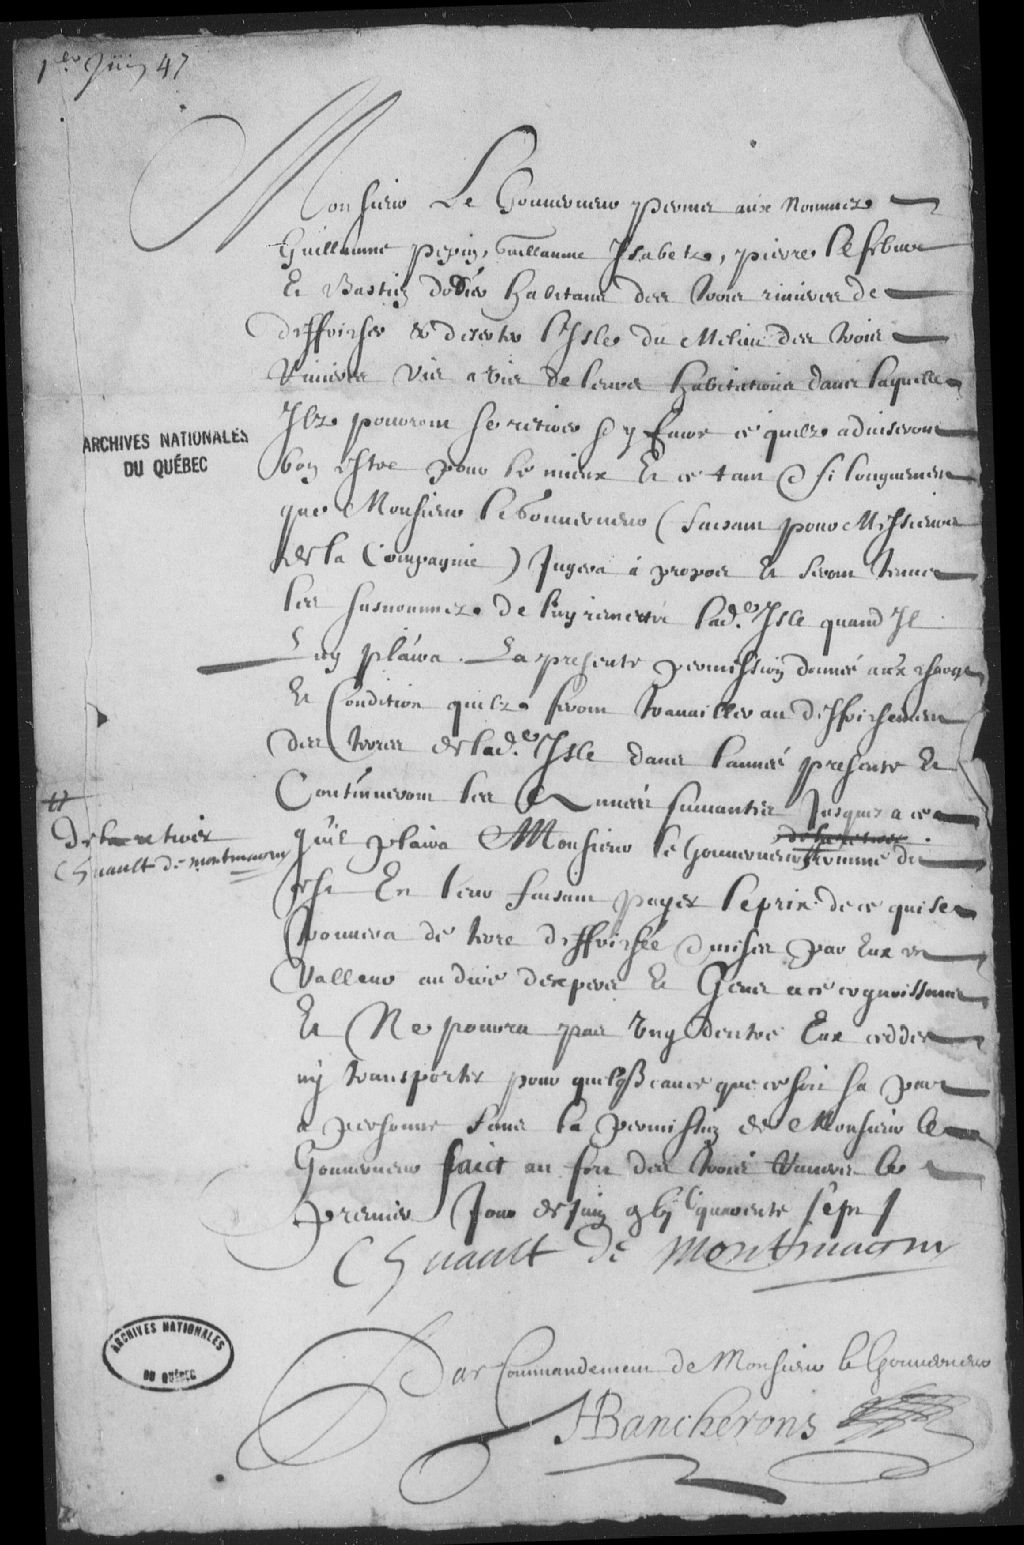 1er Juin 47
Monsieur Le Gouverneur permet aux Nommez
Guillaume pepin, Guillaume Isabelz, pierre lefebure
Et Bastien dodier habitans des trois rivieres de
deffricher & deserter l'Isle du Milieu des trois
Rivieres vis a vis de leurs habitations dans laquelle
Ilz pouront se retirer & y faire ce quilz adviseront
bon estre pour le mieux Et ce tant & si longuement
que Monsieur le Gouverneur (faisant pour Messieurs
de la Compagnie) Jugera à propos et seront tenus
les susnommez de luy remettre lad.e Isle quand Il
Luy plaira. La presente permission donnée aux charges
Et Condition quilz feront travailler au deffrichement
des terres de lad.e Isle dans l'année presente Et
Continueront les Années suivantes Jusques a ce
de les retirer
#
de les retirer
C Huault de montmagny
quil plaira A Monsieur le Gouverneur comme dit
est En leur faisant payer le prix de ce qui se
trouvera de terre deffrichée & mises par Eux en
Valleur au dire dexpers Et Gens a ce cognoissans
Et Ne poura pas Ung dentre Eux cedder
ny transporter pour quelq3 cause que ce soit sa part
a personne sans la permission de Monsieur le
Gouverneur faict au fort des trois Rivieres le
premier Jour de Juin gbi c quarente sept
C Huault de Montmagny
Par Commandement de Monsieur le Gouverneur
HBancherons
ARCHIVES NATIONALES
DU QUÉBEC
ARCHIVES NATIONALES
DU QUÉBEC